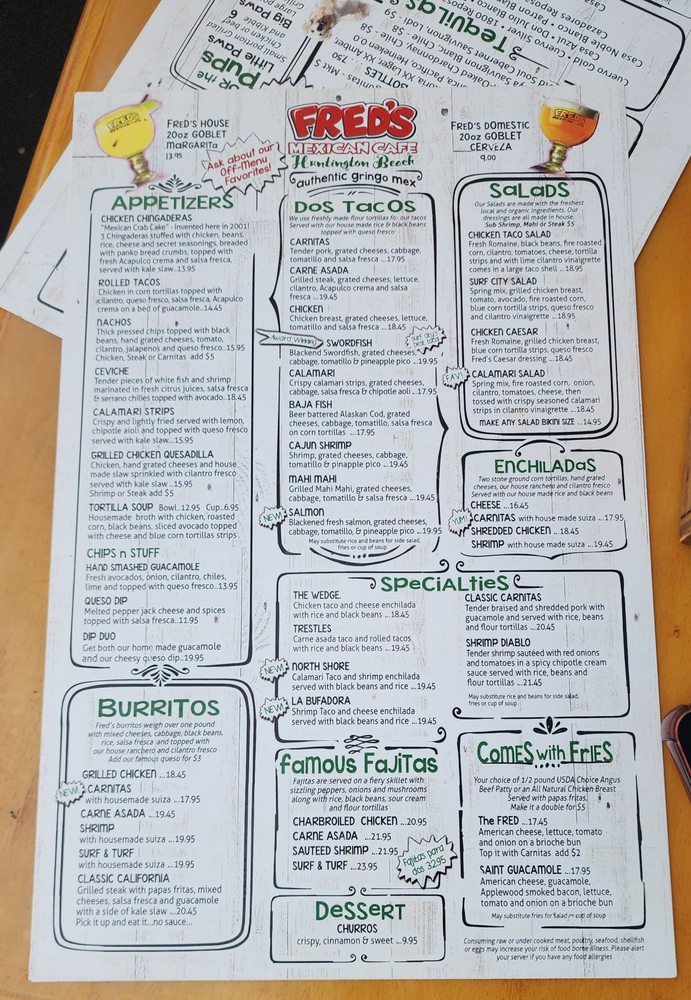 FOR the
PUPS
Little Paws
Small portion grilled
Chicken or beef
Big Paws 6
3 Tequilas
BOTTLES
FRED'S HOUSE
20oz GOBLET
MARGARITA
13.95
Ask about our
Off-Menu
Favorites!
FRED'S
MEXICAN CAFE
Huntington Beach
authentic gringo mex
FRED'S DOMESTIC
20oz GOBLET
CERVEZA
9.00
APPETIZERS
CHICKEN CHINGADERAS
"Mexican Crab Cake" - Invented here in 2001!
3 Chingaderas stuffed with chicken, beans,
rice, cheese and secret seasonings, breaded
with panko bread crumbs, topped with
fresh Acapulco crema and salsa fresca,
served with kale slaw..13.95
ROLLED TACOS
Chicken in corn tortillas topped with
cilantro, queso fresco, salsa fresca, Acapulco
crema on a bed of guacamole..14.45
NACHOS
Thick pressed chips topped with black
beans, hand grated cheeses, tomato,
cilantro, jalapenos and queso fresco..15.95
Chicken, Steak or Carnitas add $5
CEVICHE
Tender pieces of white fish and shrimp
marinated in fresh citrus juices, salsa fresca
& serrano chilies topped with avocado.18.45
CALAMARI STRIPS
Crispy and lightly fried served with lemon,
chipotle aioli and topped with queso fresco
served with kale slaw...15.95
GRILLED CHICKEN QUESADILLA
Chicken, hand grated cheeses and house
made slaw sprinkled with cilantro fresco
served with kale slaw ..15.95
Shrimp or Steak add $5
TORTILLA SOUP Bowl..12.95 Cup..6.95
Housemade broth with chicken, roasted
corn, black beans, sliced avocado topped
with cheese and blue corn tortillas strips
CHIPS n STUFF
HAND SMASHED GUACAMOLE
Fresh avocados, onion, cilantro, chiles,
lime and topped with queso fresco..13.95
QUESO DIP
Melted pepper jack cheese and spices
topped with salsa fresca..11.95
DIP DUO
Get both our home made guacamole
and our cheesy queso dip..19.95
DOS TACOS
We use freshly made flour tortillas for our tacos
Served with our house made rice & black beans
topped with queso fresco
CARNITAS
Tender pork, grated cheeses, cabbage,
tomatillo and salsa fresca ...17.95
CARNE ASADA
Grilled steak, grated cheeses, lettuce,
cilantro, Acapulco crema and salsa
fresca ...19.45
CHICKEN
Chicken breast, grated cheeses, lettuce,
tomatillo and salsa fresca ...18.45
Award Winning
SWORDFISH
Blackend Swordfish, grated cheeses,
cabbage, tomatillo & pineapple pico ...19.95
CALAMARI
Crispy calamari strips, grated cheeses,
cabbage, salsa fresca & chipotle aoli ...17.95
BAJA FISH
Beer battered Alaskan Cod, grated
cheeses, cabbage, tomatillo, salsa fresca
on corn tortillas ...17.95
CAJUN SHRIMP
Shrimp, grated cheeses, cabbage,
tomatillo & pinapple pico ...19.45
MAHI MAHI
Grilled Mahi Mahi, grated cheeses,
cabbage, tomatillo & salsa fresca ...19.45
NEW!
SALMON
Blackened fresh salmon, grated cheeses,
cabbage, tomatillo, & pineapple pico ...19.95
May substitute rice and beans for side salad,
fries or cup of soup
SALADS
Our Salads are made with the freshest
local and organic ingredients. Our
dressings are all made in house.
Sub Shrimp, Mahi or Steak $5
CHICKEN TACO SALAD
Fresh Romaine, black beans, fire roasted
corn, cilantro, tomatoes, cheese, tortilla
strips and with lime cilantro vinaigrette
comes in a large taco shell ...18.95
SURF CITY SALAD
Spring mix, grilled chicken breast,
tomato, avocado, fire roasted corn,
blue corn tortilla strips, queso fresco
and cilantro vinaigrette ...18.95
CHICKEN CAESAR
Fresh Romaine, grilled chicken breast,
blue corn tortilla strips, queso fresco
Fred's Caesar dressing ...18.45
FAV!
CALAMARI SALAD
Spring mix, fire roasted corn, onion,
cilantro, tomatoes, cheese, then
tossed with crispy seasoned calamari
strips in cilantro vinaigrette ...18.45
MAKE ANY SALAD BIKINI SIZE ...14.95
ENCHILADAS
Two stone ground corn tortillas, hand grated
cheeses, our house ranchero and cilantro fresco
Served with our house made rice and black beans
CHEESE ...16.45
YUM!
CARNITAS with house made suiza ...17.95
SHREDDED CHICKEN ...18.45
SHRIMP with house made suiza ...19.45
SPECIALTIES
THE WEDGE.
Chicken taco and cheese enchilada
with rice and black beans ...18.45
TRESTLES
Carne asada taco and rolled tacos
with rice and black beans ...19.45
NEW!
NORTH SHORE
Calamari Taco and shrimp enchilada
served with black beans and rice ...19.45
NEW!
LA BUFADORA
Shrimp Taco and cheese enchilada
served with black beans and rice ...19.45
CLASSIC CARNITAS
Tender braised and shredded pork with
guacamole and served with rice, beans
and flour tortillas ...20.45
SHRIMP DIABLO
Tender shrimp sautéed with red onions
and tomatoes in a spicy chipotle cream
sauce served with rice, beans and
flour tortillas ...21.45
May substitute rice and beans for side salad,
fries or cup of soup
BURRITOS
Fred's burritos weigh over one pound
with mixed cheeses, cabbage, black beans,
rice, salsa fresca and topped with
our house ranchero and cilantro fresco
Add our famous queso for $3
GRILLED CHICKEN ...18.45
NEW!
CARNITAS
with housemade suiza ...17.95
CARNE ASADA ...19.45
SHRIMP
with housemade suiza ...19.95
SURF & TURF
with housemade suiza ...19.95
CLASSIC CALIFORNIA
Grilled steak with papas fritas, mixed
cheeses, salsa fresca and guacamole
with a side of kale slaw ...20.45
Pick it up and eat it...no sauce...
FAMOUS FAJITAS
Fajitas are served on a fiery skillet with
sizzling peppers, onions and mushrooms
along with rice, black beans, sour cream
and flour tortillas
CHARBROILED CHICKEN ...20.95
CARNE ASADA ...21.95
SAUTEED SHRIMP ...21.95
SURF & TURF ...23.95
Fajitas para
dos 32.95
DESSERT
CHURROS
crispy, cinnamon & sweet ...9.95
COMES with FRIES
Your choice of 1/2 pound USDA Choice Angus
Beef Patty or an All Natural Chicken Breast
Served with papas fritas.
Make it a double for $5
The FRED ...17.45
American cheese, lettuce, tomato
and onion on a brioche bun
Top it with Carnitas add $2
SAINT GUACAMOLE ...17.95
American cheese, guacamole,
Applewood smoked bacon, lettuce,
tomato and onion on a brioche bun
May substitute fries for Salad or cup of soup
Consuming raw or under cooked meat, poultry, seafood, shellfish
or eggs may increase your risk of food borne illness. Please alert
your server if you have any food allergies